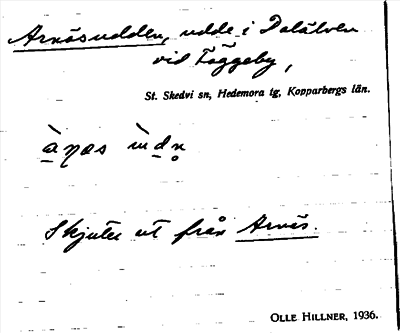 Arnösudden, udde i Dalälven
vid Fäggeby,
St. Skedvi sn, Hedemora tg, Kopparbergs län.
Skjuter ut från Arnös.
OLLE HILLNER, 1936.